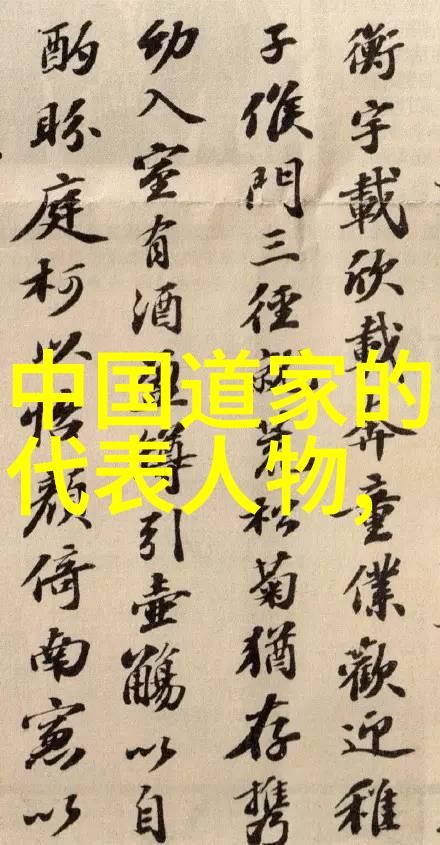 衡宇載欣載奔童僕歡迎稚
子候門三徑就荒松菊猶存携
幼入室有酒盈罇引壺觴以自
酌眄庭柯以怡顏倚南窻以
中国道家的
代表人物,